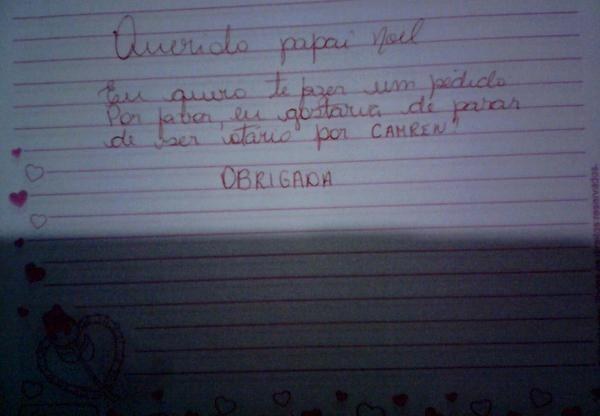 Querido papai noel
Eu quero te fazer um pedido
Por favor, eu gostaria de parar
de ser otário por CAMREN!
OBRIGADA